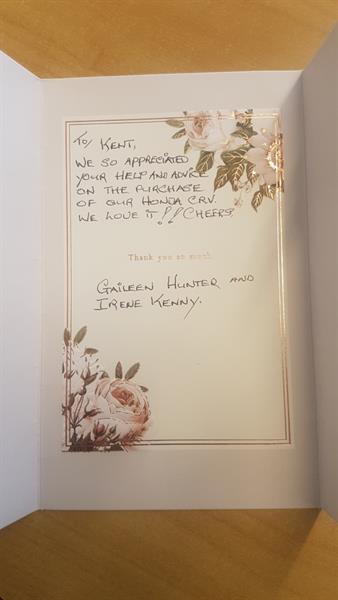 To/ KENT,
WE SO APPRECIATED
YOUR HELP AND ADVICE
ON THE PURCHASE
OF OUR HONDA CRV.
WE LOVE IT!! CHEERS.
Thank you so much
GAILEEN HUNTER AND
IRENE KENNY.